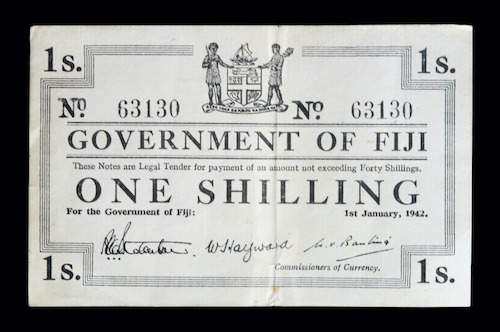 1s. 1s.
No. 63130 No. 63130
GOVERNMENT OF FIJI
These Notes are Legal Tender for payment of an amount not exceeding Forty Shillings.
ONE SHILLING
For the Government of Fiji: 1st January, 1942.
W Hayward
Commissioners of Currency.
1s. 1s.